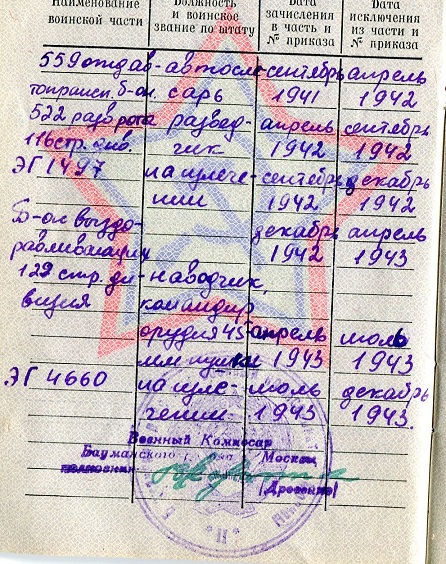 Наименование воинской части
Должность и воинское звание по штату
Дата зачисления в часть и № приказа
Дата исключения из части и № приказа
559 отд ав- автосле- сентябрь апрель
топрисп. б-он. сарь 1941 1942
522 разв рота развед- апрель сентябрь
116 стр. див. чик 1942 1942
ЭГ 1497 на излече- сентябрь декабрь
нии 1942 1942
Б-он выздо- декабрь апрель
равливающих 1942 1943
129 стр. ди- наводчик,
визия командир
орудия 45- апрель июль
мм пушки 1943 1943
ЭГ 4660 на изле- июль декабрь
чении 1943 1943.
Военный Комиссар
Бауманского р-на Москвы
полковник